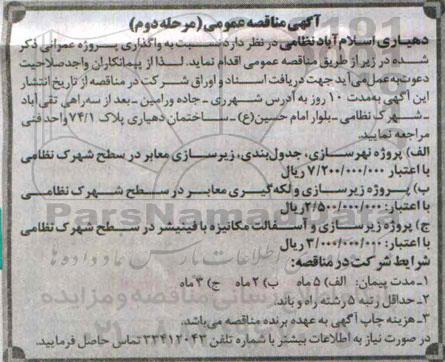 آگهی مناقصه عمومی (مرحله دوم)
دهیاری اسلام آباد نظامی در نظر دارد نسبت به واگذاری پروژه عمرانی ذکر
شده در زیر از طریق مناقصه عمومی اقدام نماید. لذا از پیمانکاران واجد صلاحیت
دعوت به عمل می آید جهت دریافت اسناد و اوراق شرکت در مناقصه از تاریخ انتشار
این آگهی به مدت ۱۰ روز به آدرس شهرری - جاده ورامین - بعد از سه راهی تقی آباد
- شهرک نظامی - بلوار امام حسین(ع) - ساختمان دهیاری پلاک ۷۴/۱ واحد فنی
مراجعه نمایید.
الف) پروژه نهرسازی، جدول بندی، زیرسازی معابر در سطح شهرک نظامی
با اعتبار: ۷/۲۰۰/۰۰۰/۰۰۰ ریال
ب) پروژه زیرسازی و لکه گیری معابر در سطح شهرک نظامی
با اعتبار: ۲/۵۰۰/۰۰۰/۰۰۰ ریال
ج) پروژه زیرسازی و آسفالت مکانیزه با فینیشر در سطح شهرک نظامی
با اعتبار: ۳/۰۰۰/۰۰۰/۰۰۰ ریال
شرایط شرکت در مناقصه:
۱- مدت پیمان: الف) ۵ ماه ب) ۲ ماه ج) ۳ ماه
۲- حداقل رتبه ۵ رشته راه و باند.
۳- هزینه چاپ آگهی به عهده برنده مناقصه می باشد.
در صورت نیاز به اطلاعات بیشتر با شماره تلفن ۳۳۴۱۲۰۴۳ تماس حاصل فرمایید.
ParsNamadData